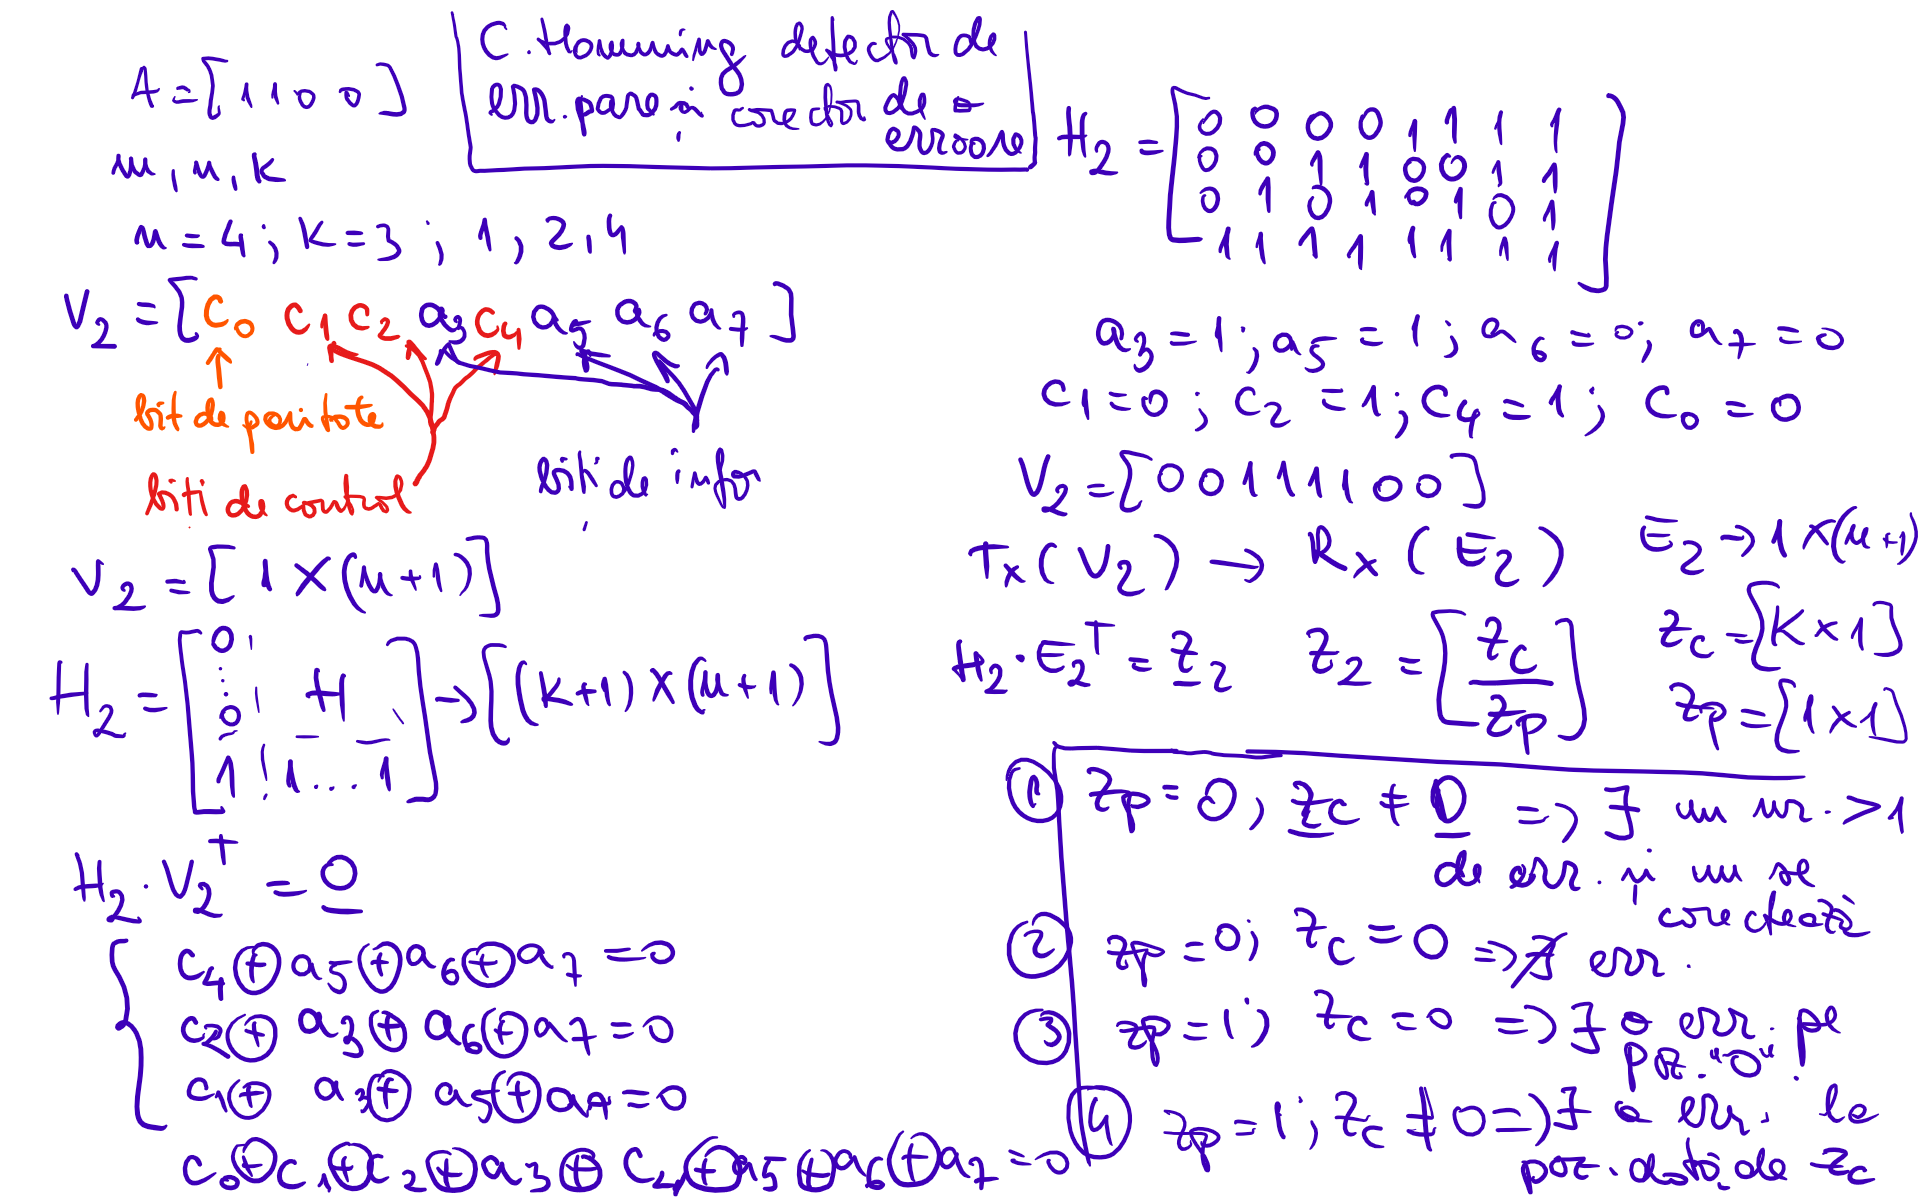 A = [1 1 0 0]
C. Hamming detector de
err. pare și corector de o
eroare
m, n, k
m = 4 ; k = 3 ; 1, 2, 4
V2 = [c0 c1 c2 a3 c4 a5 a6 a7]
bit de paritate
biti de control
biti de infor
V2 = [1 × (n+1)]
H2 = [0 ⋮ 0 1 | H 1 ... 1] → [(k+1) × (n+1)]
H2 · V2^T = 0
c4 ⊕ a5 ⊕ a6 ⊕ a7 = 0
c2 ⊕ a3 ⊕ a6 ⊕ a7 = 0
c1 ⊕ a3 ⊕ a5 ⊕ a7 = 0
c0 ⊕ c1 ⊕ c2 ⊕ a3 ⊕ c4 ⊕ a5 ⊕ a6 ⊕ a7 = 0
H2 =
0 0 0 0 1 1 1 1
0 0 1 1 0 0 1 1
0 1 0 1 0 1 0 1
1 1 1 1 1 1 1 1
a3 = 1 ; a5 = 1 ; a6 = 0 ; a7 = 0
c1 = 0 ; c2 = 1 ; c4 = 1 ; c0 = 0
V2 = [0 0 1 1 1 1 0 0]
Tx (V2) → Rx (E2) E2 → 1 × (n+1)
H2 · E2^T = z2 z2 = [zc / zp] zc = [k × 1]
zp = [1 × 1]
① zp = 0 ; zc ≠ 0 => ∃ un nr. > 1
de err. și nu se
corectează
② zp = 0 ; zc = 0 => ∄ err.
③ zp = 1 ; zc = 0 => ∃ o err. pe
poz. "0".
④ zp = 1 ; zc ≠ 0 => ∃ o err. la
poz. dată de zc